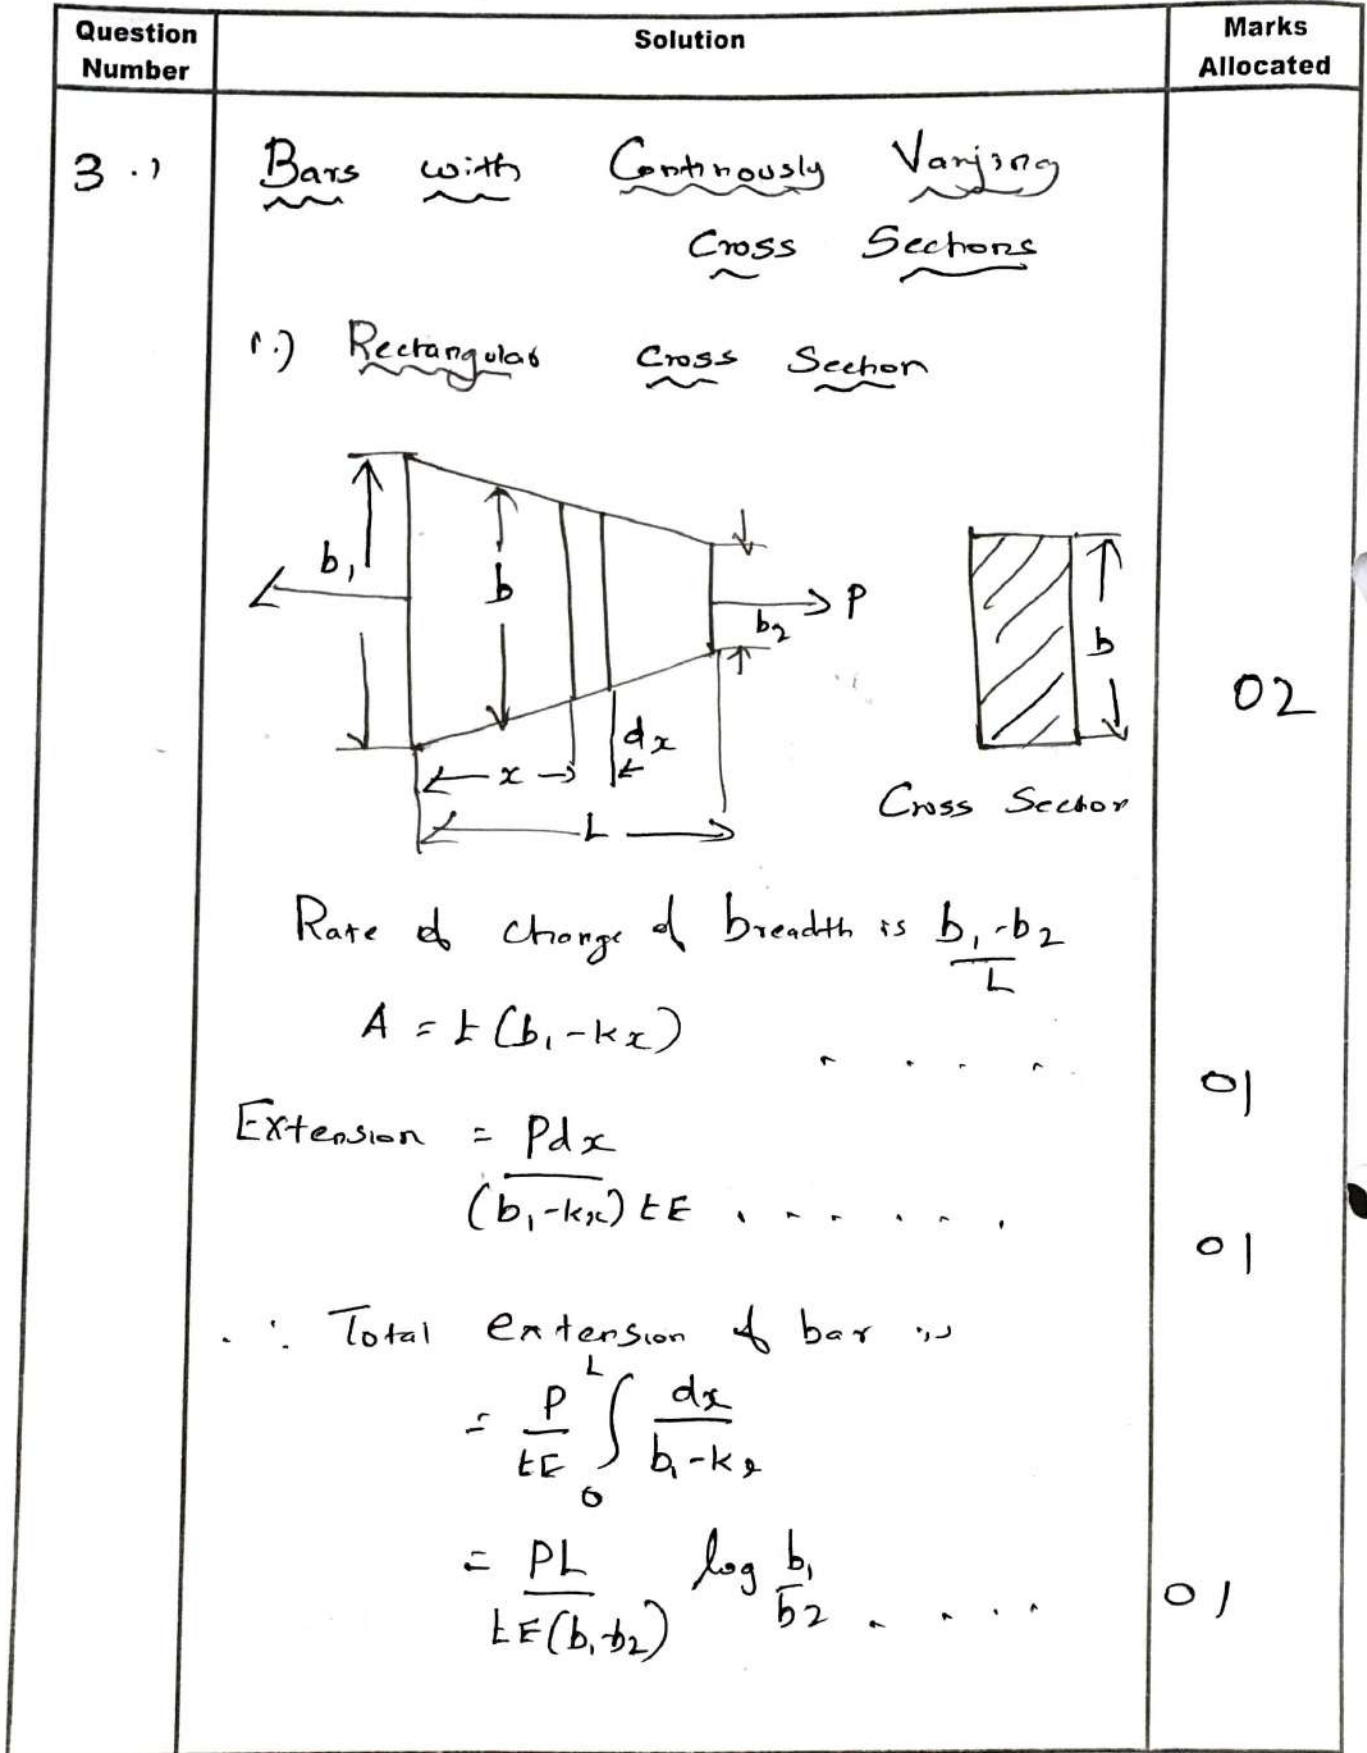 Question Number
Solution
Marks Allocated
3.1
Bars with Continously Varying
Cross Sections
1.) Rectangular Cross Section
b₁
b
b₂
P
dx
x
L
b
Cross Section
02
Rate of change of breadth is (b₁-b₂)/L
A = t(b₁-kx) . . . .
01
Extension = Pdx/((b₁-kx)tE) . . . . . .
01
∴ Total extension of bar is
= P/tE ∫₀ᴸ dx/(b₁-kx)
= PL/(tE(b₁-b₂)) log b₁/b₂ . . . .
01